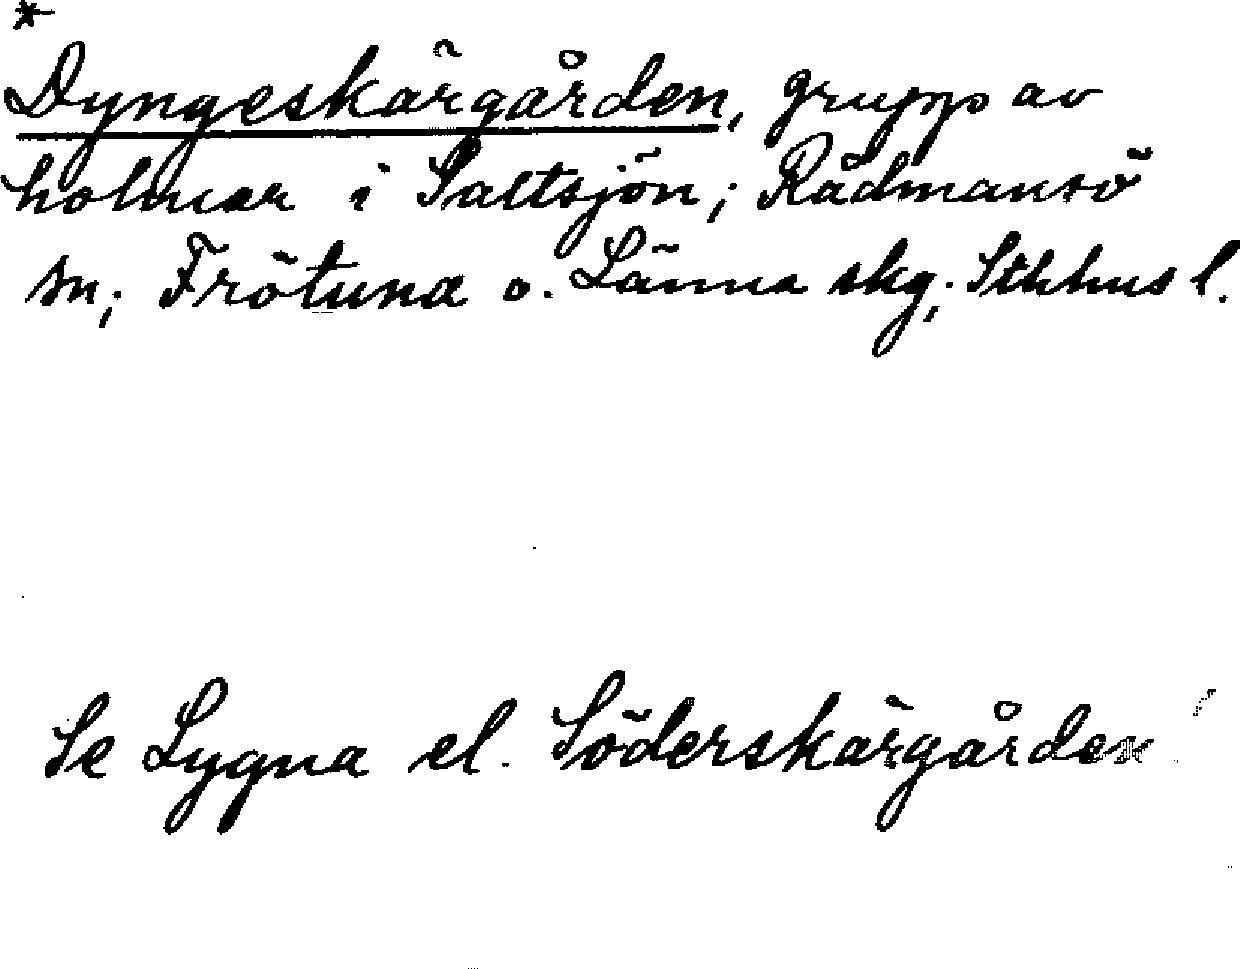 *
Dyngeskärgården, grupp av
holmar i Saltsjön; Rådmansö
sn; Frötuna o. Länna skg; Sthlms l.
Se Lygna el. Söderskärgården